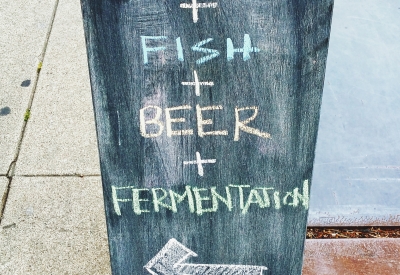 +
FISH
+
BEER
+
FERMENTATION